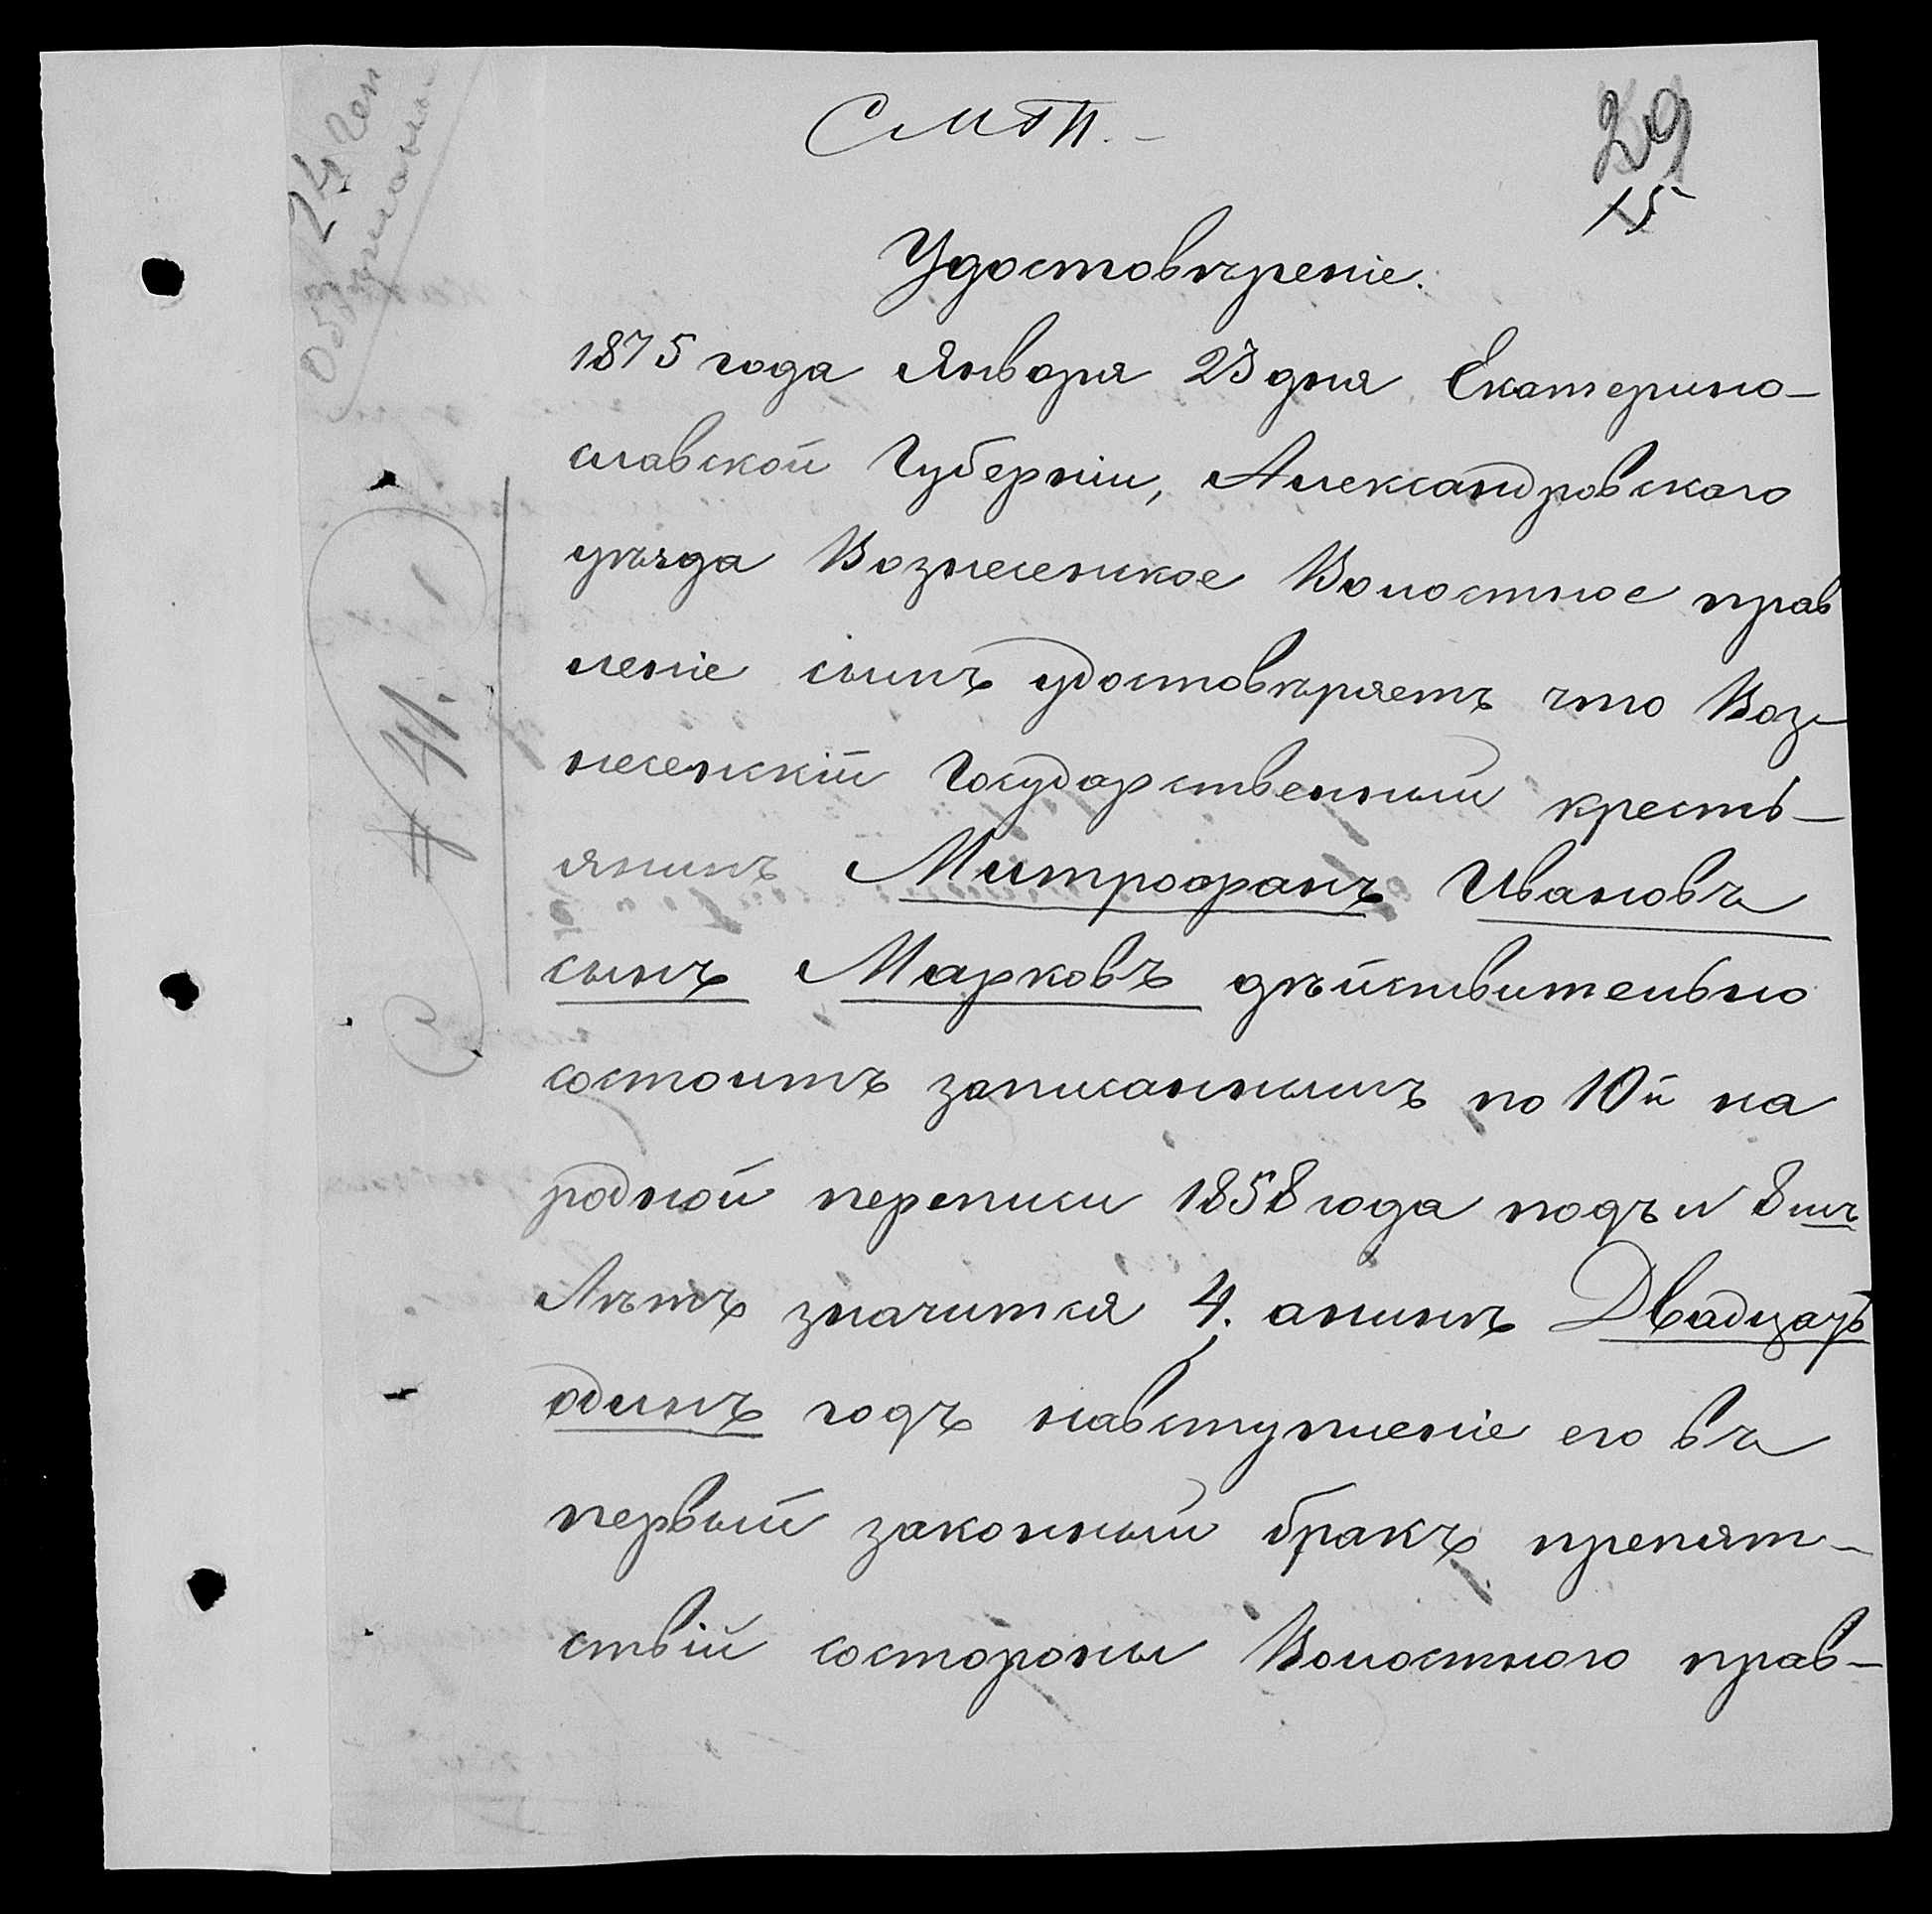 СМТП.-
29
15
Удостовѣреніе.
1875 года Января 23 дня Екатерино-
славской Губерніи, Александровскаго
уѣзда Вознесенское Волостное прав
леніе симъ удостовѣряетъ что Воз-
несенскій Государственный кресть-
янинъ Митрофанъ Ивановъ
сынъ Марковъ дѣйствительно
состоитъ записаннымъ по 10й на
родной переписи 1858 года подъ № 8мъ
Лѣтъ значится 4. анынѣ Двадцать
одинъ годъ навступленіе его въ
первый законный бракъ препят-
ствій состороны Волостного прав-
24 Ген
# 41.